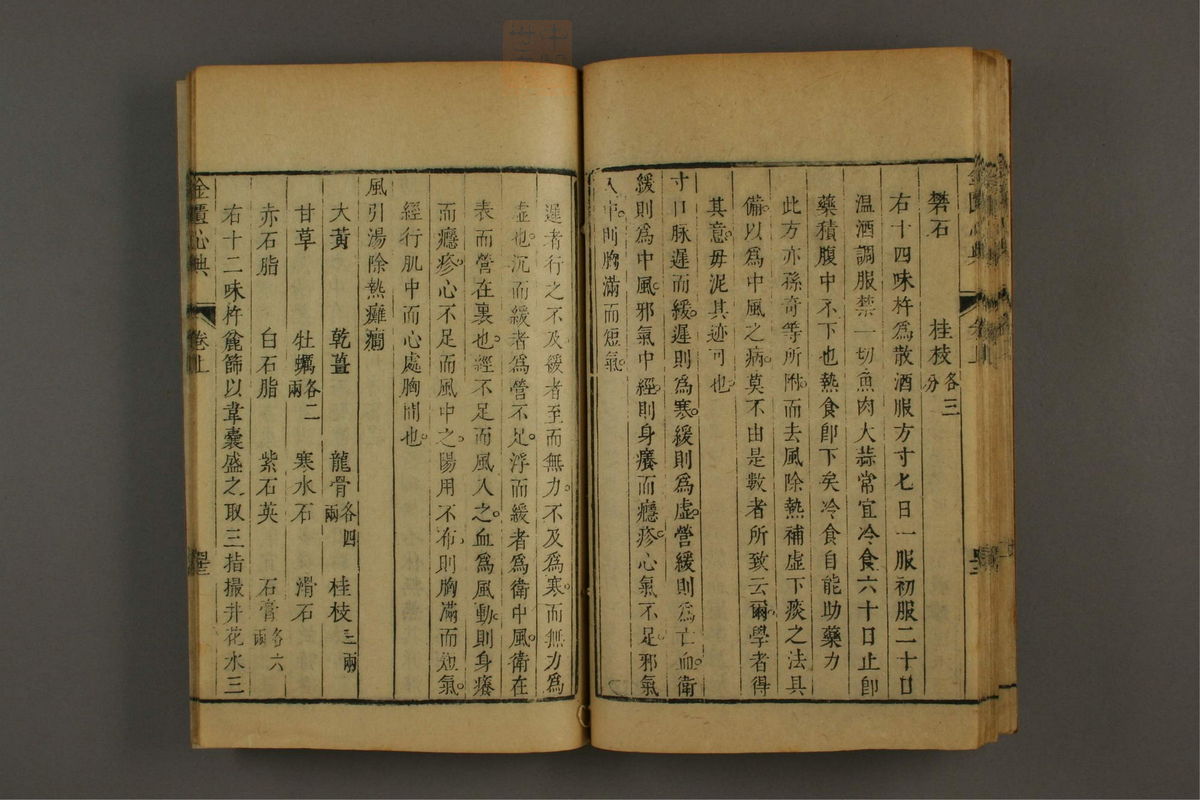 礬石 桂枝各三分
右十四味杵為散酒服方寸七日一服初服二十日
温酒調服禁一切魚肉大蒜常宜冷食六十日止即
藥積腹中不下也熱食即下矣冷食自能助藥力
此方亦孫奇等所附而去風除熱補虛下痰之法具
備以為中風之病莫不由是數者所致云爾學者得
其意毋泥其迹可也
寸口脉遲而緩遲則為寒緩則為虛營緩則為亡血衛
緩則為中風邪氣中經則身癢而癮疹心氣不足邪氣
入中則胸滿而短氣
遲者行之不及緩者至而無力不及為寒而無力為
虛也沉而緩者為營不足浮而緩者為衛中風衛在
表而營在裏也經不足而風入之血為風動則身癢
而癮疹心不足而風中之陽用不布則胸滿而短氣
經行肌中而心處胸間也
風引湯除熱癱癇
大黃 乾薑 龍骨各四兩 桂枝三兩
甘草 牡蠣各二兩 寒水石 滑石
赤石脂 白石脂 紫石英 石膏各六兩
右十二味杵麄篩以韋囊盛之取三指撮井花水三
金匱心典 卷上